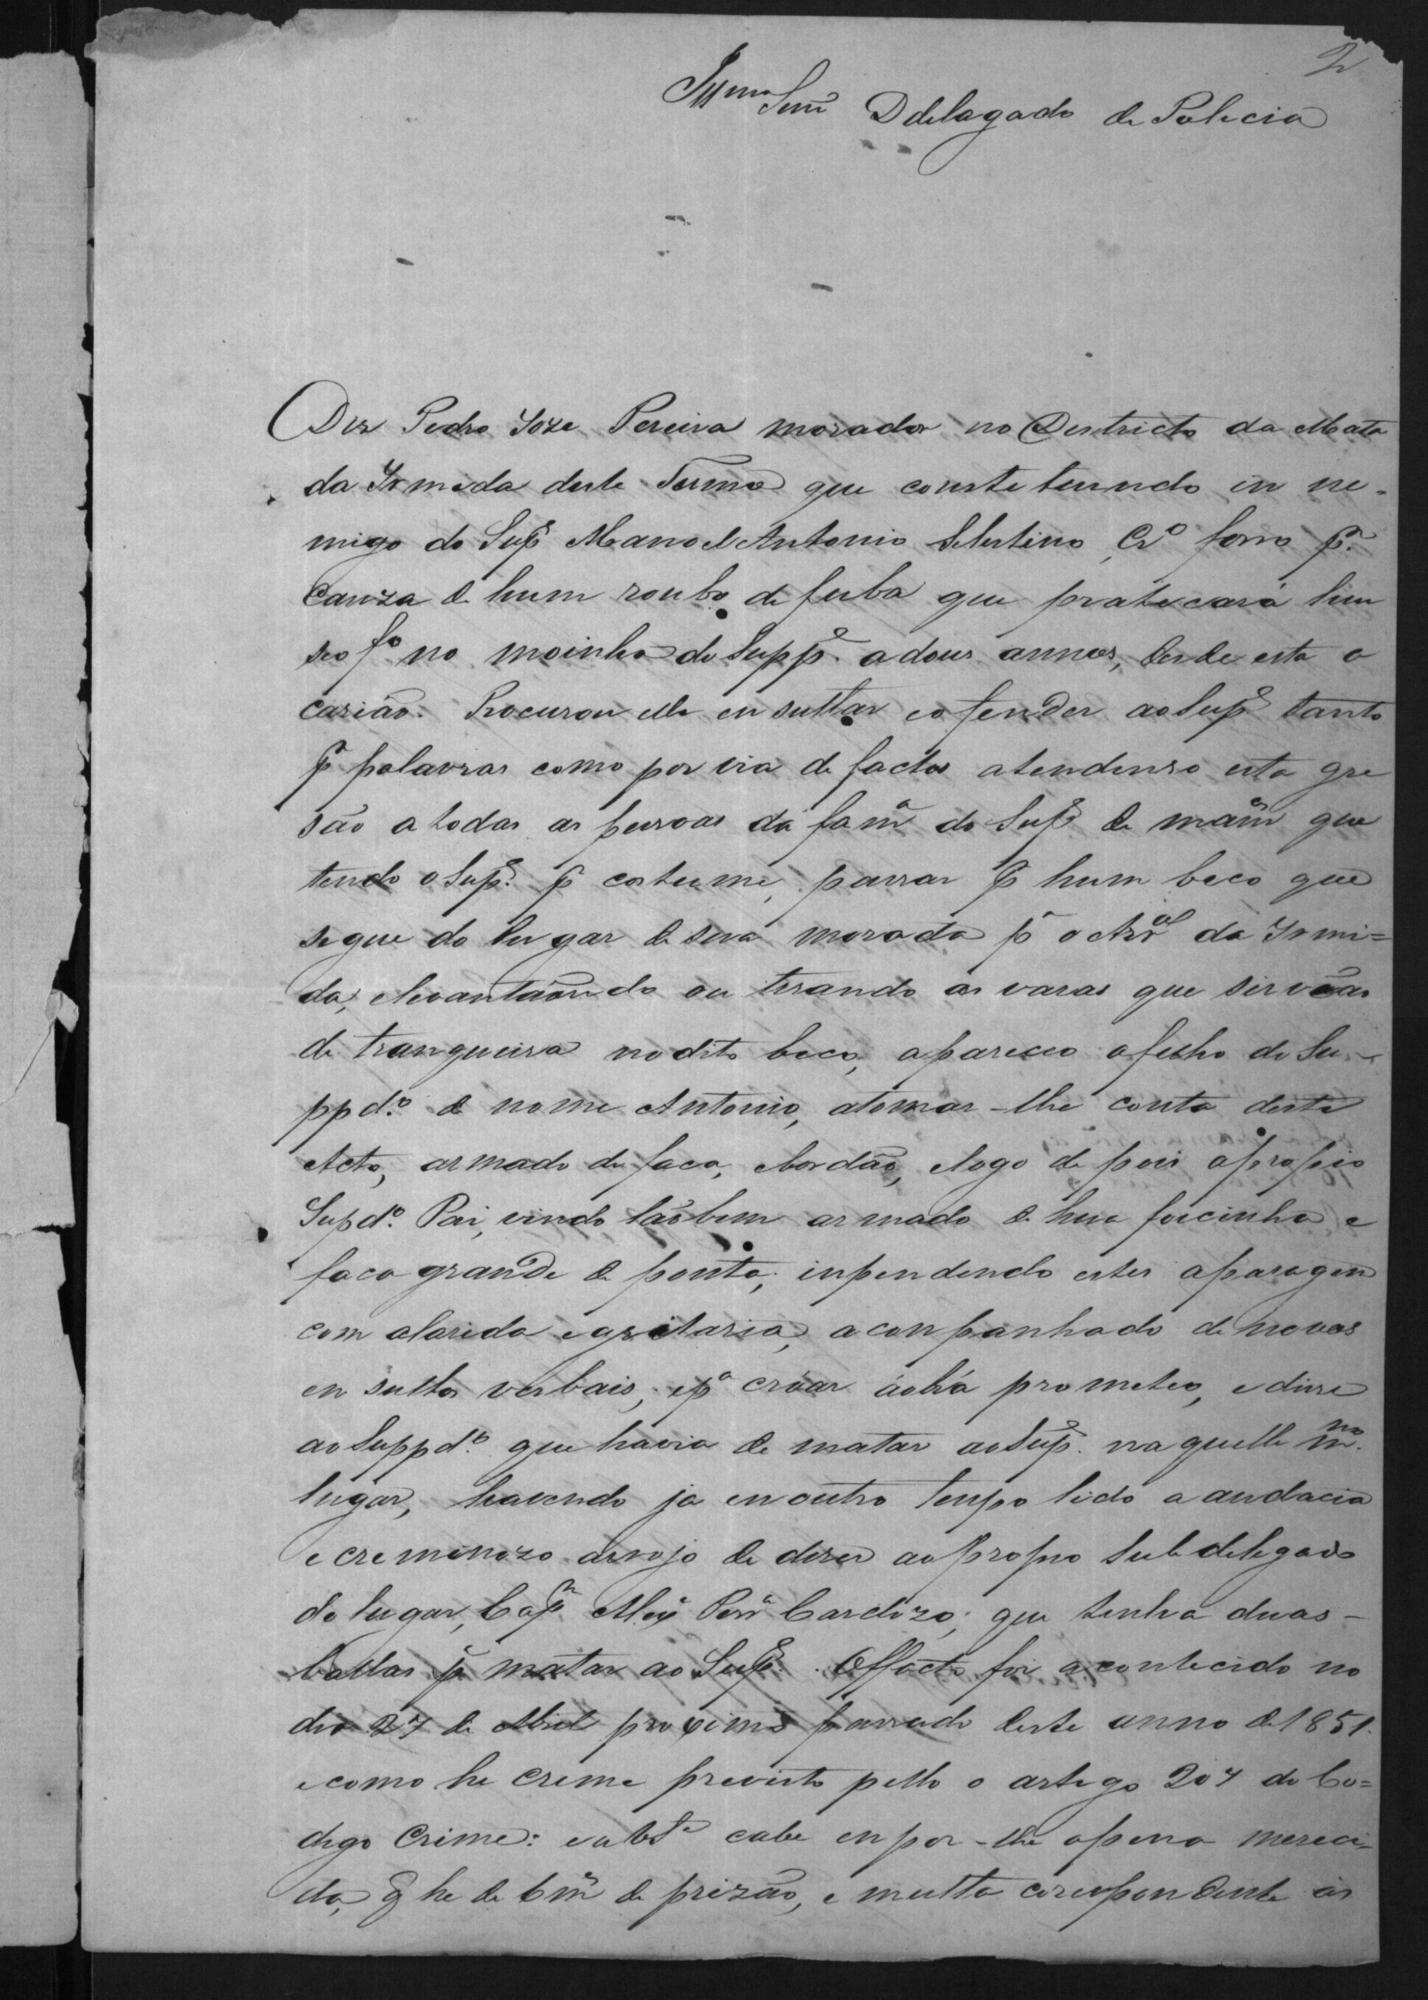 2
Illmo Senr Ddelagado de Polecia
Diz Pedro Joze Pereira morador no Destricto da Mata
da Irmida deste Termo que constetuindo in ne-
migo do Supe Manoel Antonio Selestino Cro forro pr.
Cauza de hum roubo de fuba que pratecará hum
seo fo no moinho do Suppe. a dous annos, desde esta o
carião. Procurou elle en sultar e ofender ao Supe tanto
pr palavras como por via de factos atendenro esta gre
são a todas as pessoas da fama do Supe de maña que
tendo o Supe. pr costume, passar pr hum beco que
segue do lugar de sua morada pa o Arral da Irmi=
da, elevantando ou terando as varas que servião
de tranqueira no dito beco, apareceo o felho do Su-
ppdo. de nome Antonio, atomar-lhe conta deste
Acto, armado de faca, ebordão, elogo de pois o propio
Supdo. Pai, vindo tãobem armado de hua foicinha e
faca grande de ponta, inpendendo estes apasagem
com alarida egritaria, aconpanhado de novas
en sultos verbais, epa
prometeo, e dise
ao Suppdo. que havia de matar ao Supe. naquelle mmo.
lugar, havendo ja en outro tenpo tido a audacia
e creminozo arrojo de dizer ao propio Subdelegado
do lugar, Capm Alexe Pera Cardozo; que tenha duas-
ballas pa matar ao Supe. Offacto foi acontecido no
dia 27 de Abril proximo passado deste anno de 1851.
e como he creme previsto pello o artego 207 do Co=
dego Crime: cabe enpor-lhe apena mereci-
da, q he de 6 ms de prizão, e multa corespondente as